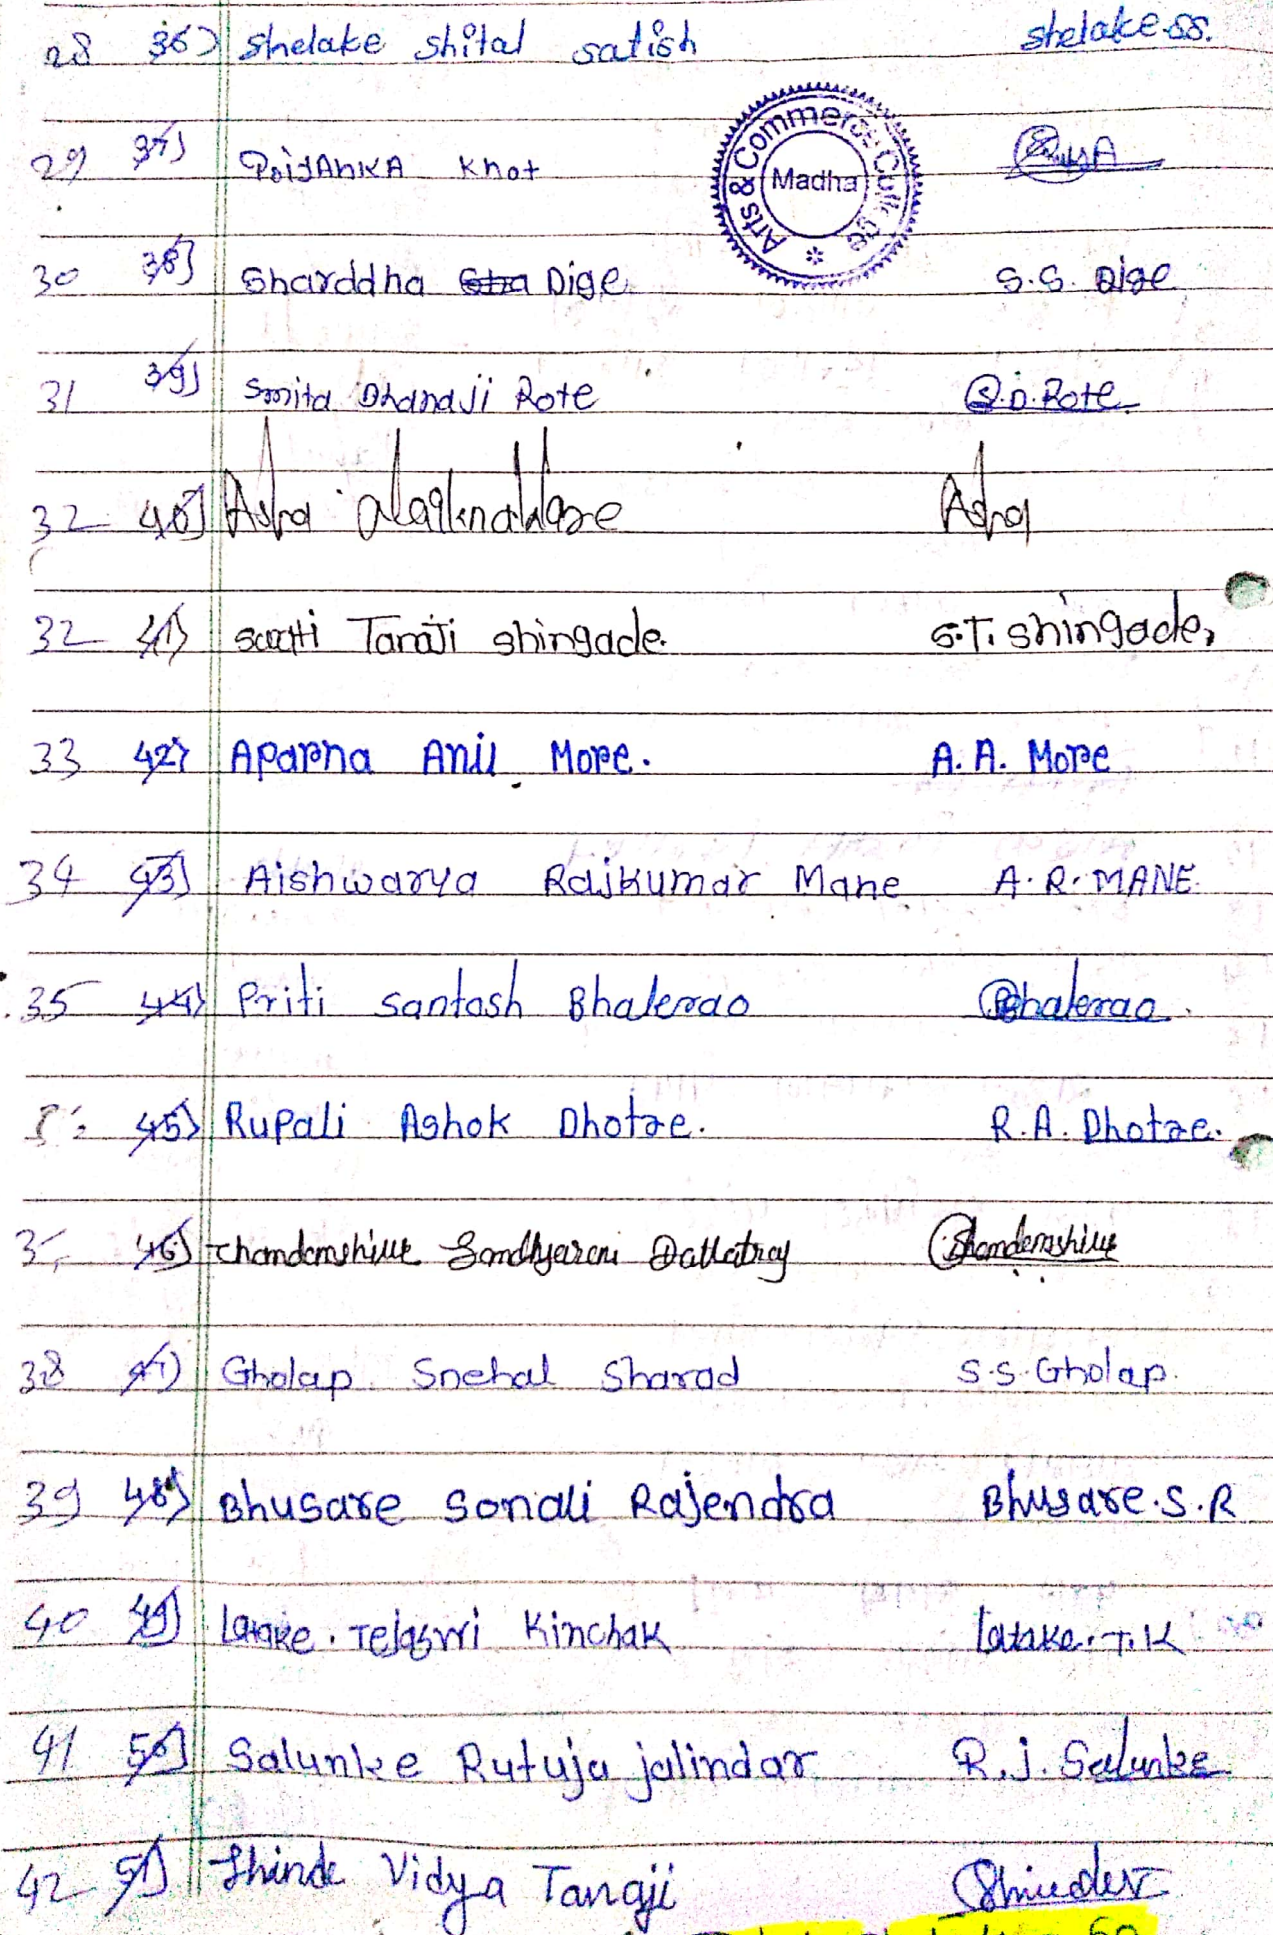 28 36) Shelake Shital Satish Shelake.SS.
29 37) PriyAnKA Khot
Arts & Commerce College Madha
30 38) Sharddha Dige S.S. Dige
31 39) Smita Dhanaji Rote S.D.Rote.
32 40) Asha Asha
32 41) Swati Tanaji Shingade. S.T. Shingade,
33 42) Aparna Anil More. A. A. More
34 43) Aishwarya Rajkumar Mane A. R. MANE
35 44) Priti Santosh Bhalerao Bhalerao.
45) Rupali Ashok Dhotre. R.A. Dhotre.
46) Chandanshive Sandhyarani Dattatray Chandanshive
38 47) Gholap Snehal Sharad S.S. Gholap.
39 48) Bhusare Sonali Rajendra Bhusare.S.R
40 49) Latake. Tejasvri Kinchak Latake.T.K
41 50) Salunke Rutuja jalindar R.J. Salunke
42 51) Shinde Vidya Tanaji